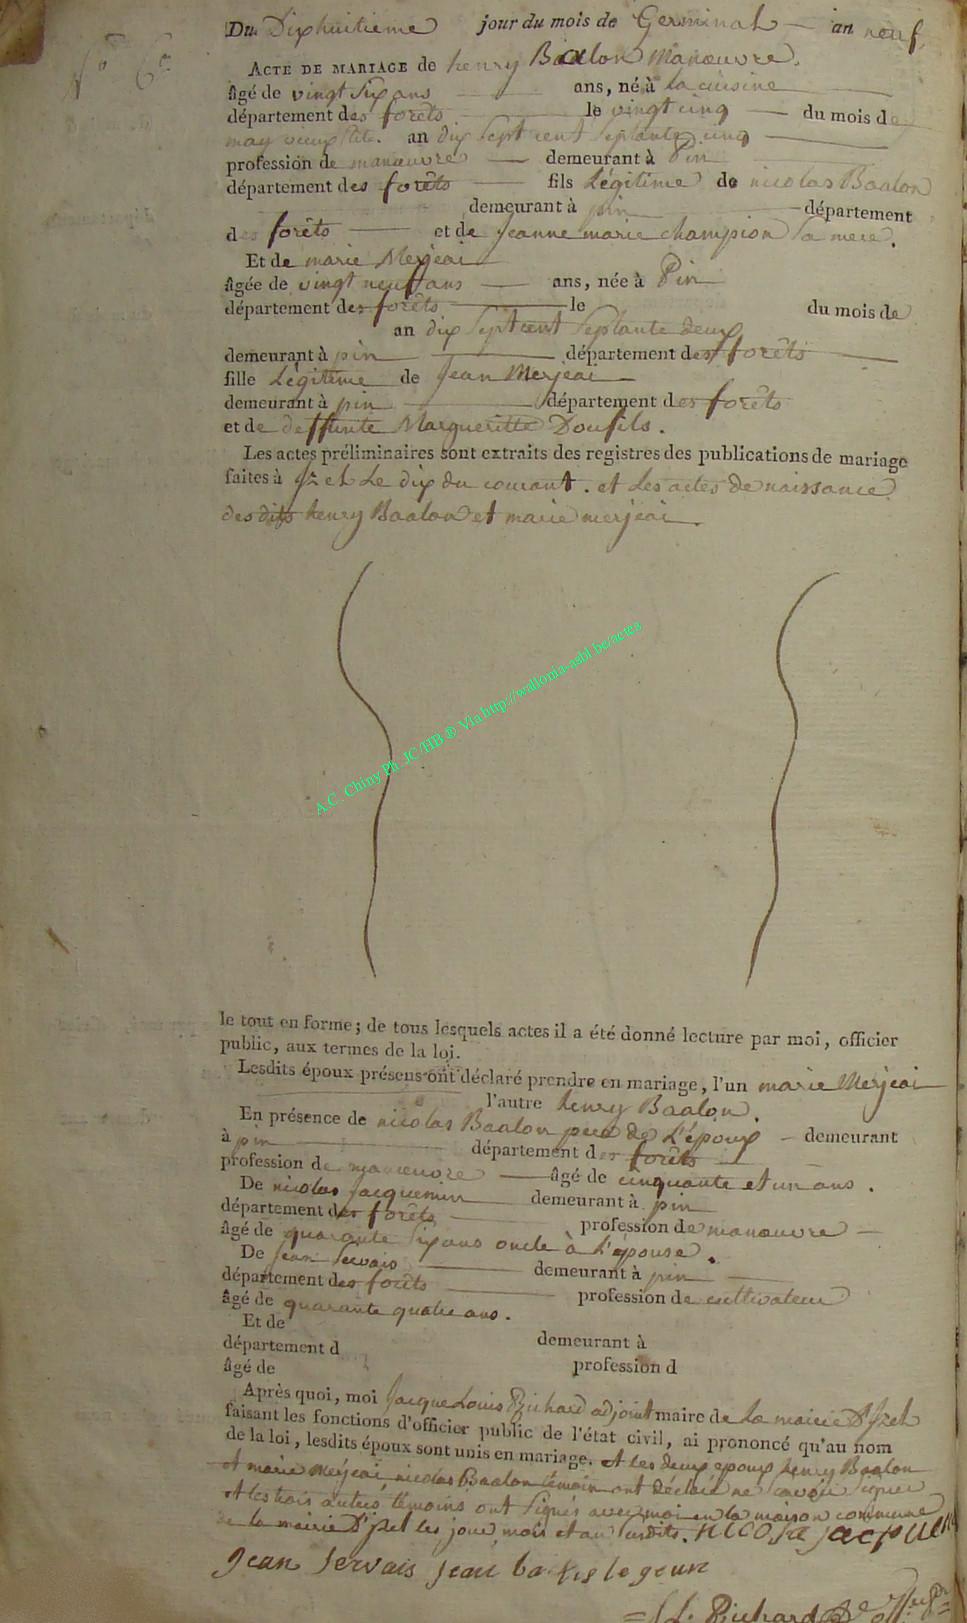 Du Dixhuitieme jour du mois de Germinal an neuf
N° 6e
ACTE DE MARIAGE de henry Baalon Manœuvre.
âgé de vingt six ans ans, né à la cuisine
département des forêts le vingt cinq du mois de
may vieux stile. an dix sept cent septante cinq
profession de manœuvre demeurant à Pin
département des forêts fils Légitime de nicolas Baalon
demeurant à pin département
des forêts et de Jeanne marie champion sa mere.
Et de marie Merjeai
âgée de vingt neuf ans ans, née à Pin
département des forêts le du mois de
an dix sept cent septante deux
demeurant à pin département des forêts
fille Légitime de Jean Merjeai
demeurant à pin département des forêts
et de deffunte Margueritte Doufils.
Les actes préliminaires sont extraits des registres des publications de mariage
faites à Izel Le dix du courant. et Les actes de naissance
des dits henry Baalon et marie merjeai.
A.C. Chiny Ph. JC/HB ® Via http://wallonia-asbl.be/actes
le tout en forme; de tous lesquels actes il a été donné lecture par moi, officier
public, aux termes de la loi.
Lesdits époux présens ont déclaré prendre en mariage, l'un marie Merjeai
l'autre henry Baalon.
En présence de nicolas Baalon pere de L'époux demeurant
à pin département des forêts
profession de manœuvre âgé de cinquante et un ans.
De nicolas Jacquemin demeurant à pin
département des forêts profession de manœuvre
âgé de quarante six ans oncle à L'épouse.
De Jean Servais demeurant à pin
département des forêts profession de cultivateur
âgé de quarante quatre ans.
Et de demeurant à
département d profession d
âgé de
Après quoi, moi Jacque Louis Richard adjoint maire de La mairie D'Izel
faisant les fonctions d'officier public de l'état civil, ai prononcé qu'au nom
de la loi, lesdits époux sont unis en mariage. et les deux epoux henry Baalon
et marie Merjeai, nicolas Baalon témoin ont déclaré ne savoir signer
et les trois autres témoins ont signés avec moi en la maison commune
de la mairie D'izel les jour mois et an susdits. nicola jacquemin
jean servais jean batis le jeun
J L. Richard